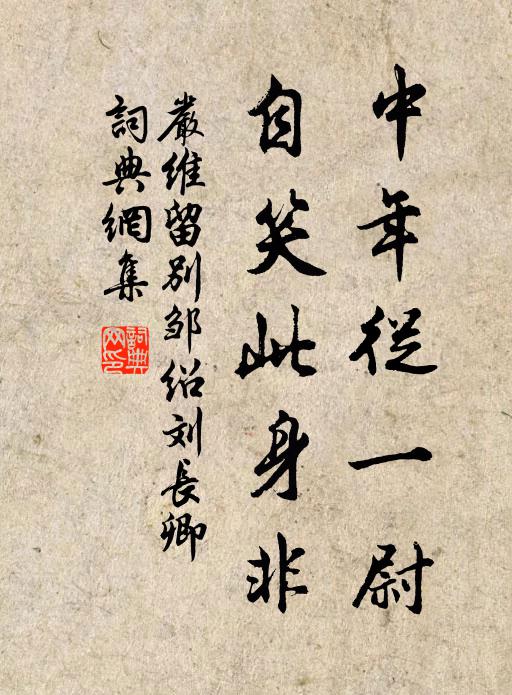 中年從一尉
自笑此身非
嚴維留別邹绍刘長卿
詞典網集
詞典网印